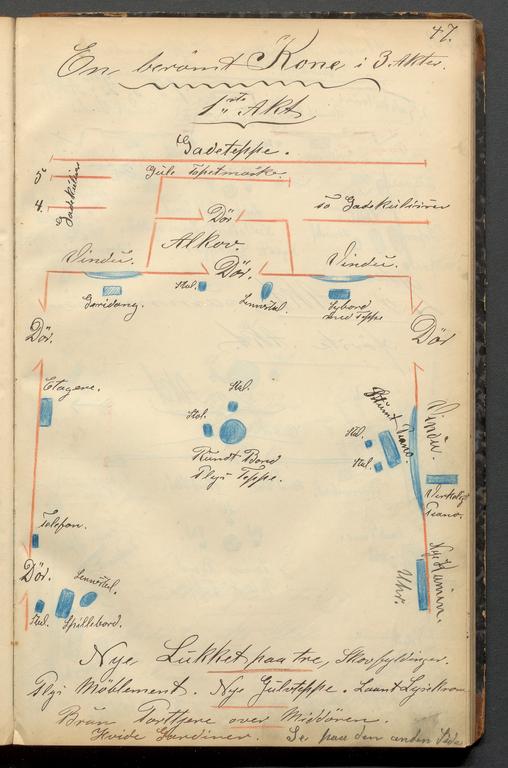 47.
En berömt Kone i 3 Akter.
1ste Akt
Gadeteppe.
5
4.
Gadekulisser
Gule Tapetmaske.
to Gadekulisser
Dör
Alkov.
Vindu.
Dör.
Vindu.
Geridong.
Stol.
Lennstol.
Sybord
med Teppe
Dör.
Dör
Etagere.
Stol.
Stol.
Rundt Bord
Plys Teppe.
Stumt Piano.
Stol.
Stol.
Vindu.
Virkeligt
Piano.
Telefon.
Dör.
Lennstol.
Stol.
Spillebord.
Uhr.
Nye Kamin.
Nye Lukket paa tre, Skovfyldinger.
Plys Möblement. Nye Gulvteppe. Laant Lysekrone
Brun Portiere over Middören.
Hvide Gardiner. Se paa den anden Side